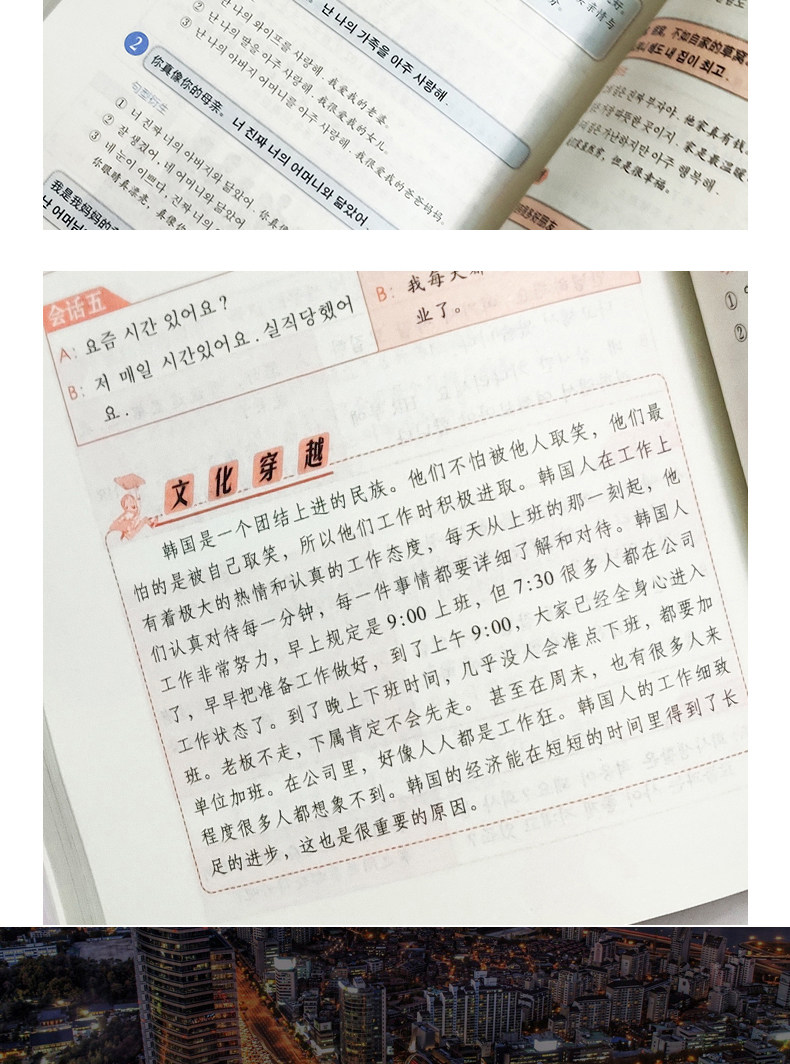 难 나의 가족을 아주 사랑해.
② 난 나의 와이프를 사랑해. 我爱我的老婆。
② 난 나의 딸을 아주 사랑해. 我很爱我的女儿。
③ 난 나의 아버지 어머니를 아주 사랑해. 我很爱我的爸爸妈妈。
2
你真像你的母亲。 너 진짜 너의 어머니와 닮았어.
句型衍生
① 너 진짜 너의 아버지와 닮았어.
② 잘 생겼어, 네 어머니와 닮았어
③ 네 눈이 이쁘다, 진짜 너의
你眼睛真漂亮,真像你
我是我妈妈的
난 어머님
不如自家的草窝
내 집이 최고.
진짜 부자야. 他家真有钱
따뜻한 곳이지. 家是最温暖
가난하지만 아주 행복해.
但是很幸福。
会话五
A: 요즘 시간 있어요?
B: 저 매일 시간있어요. 실적당했어
요.
B: 我每天都
业了。
①
②
文化穿越
韩国是一个团结上进的民族。他们不怕被他人取笑,他们最
怕的是被自己取笑,所以他们工作时积极进取。韩国人在工作上
有着极大的热情和认真的工作态度,每天从上班的那一刻起,他
们认真对待每一分钟,每一件事情都要详细了解和对待。韩国人
工作非常努力,早上规定是 9:00 上班,但 7:30 很多人都在公司
了,早早把准备工作做好,到了上午 9:00,大家已经全身心进入
工作状态了。到了晚上下班时间,几乎没人会准点下班,都要加
班。老板不走,下属肯定不会先走。甚至在周末,也有很多人来
单位加班。在公司里,好像人人都是工作狂。韩国人的工作细致
程度很多人都想象不到。韩国的经济能在短短的时间里得到了长
足的进步,这也是很重要的原因。